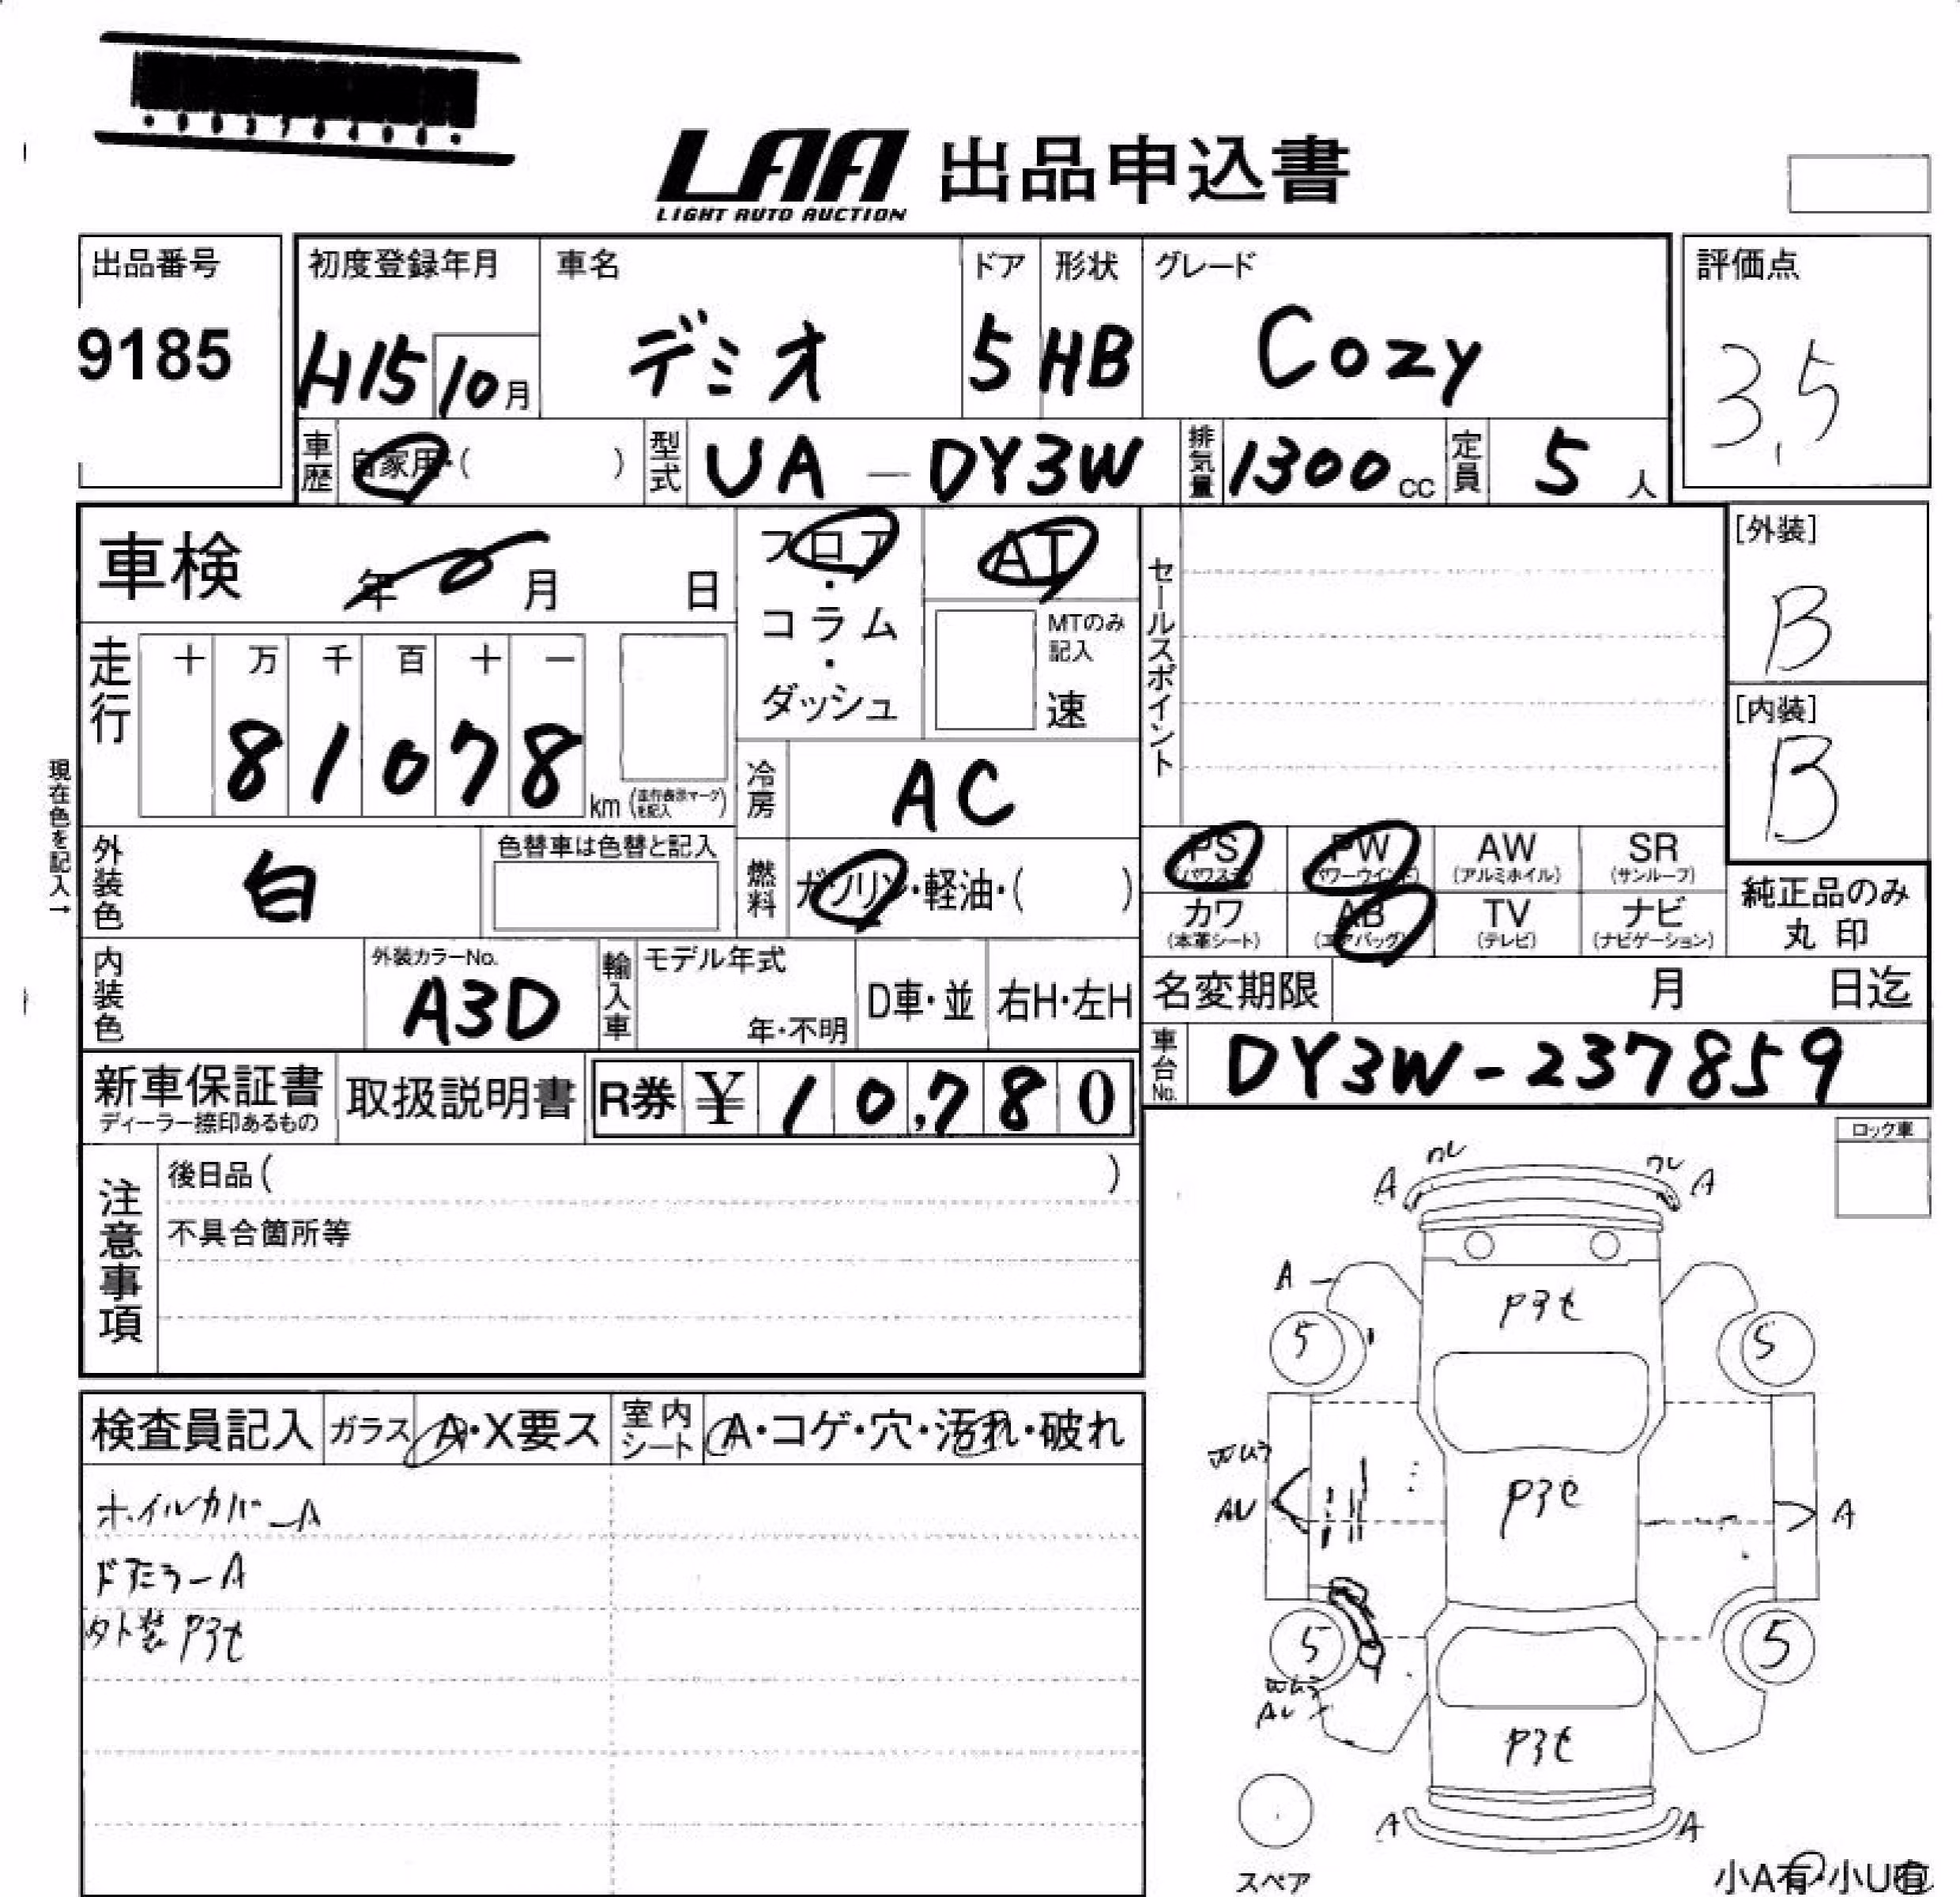 LAA 出品申込書
LIGHT AUTO AUCTION
出品番号
9185
初度登録年月
H15 10月
車名
デミオ
ドア
5
形状
HB
グレード
Cozy
評価点
3.5
車歴
自家用・( )
型式
UA-DY3W
排気量
1300cc
定員
5人
車検
年 月 日
フロア・コラム・ダッシュ
AT
MTのみ記入
速
セールスポイント
[外装]
B
[内装]
B
走行
十 万 千 百 十 一
8 1 0 7 8
km (走行表示マークを記入)
冷房
AC
現在色を記入→
外装色
白
色替車は色替と記入
燃料
ガソリン・軽油・( )
PS (パワステ)
PW (パワーウインド)
AW (アルミホイル)
SR (サンルーフ)
カワ (本革シート)
AB (エアバッグ)
TV (テレビ)
ナビ (ナビゲーション)
純正品のみ
丸印
内装色
外装カラーNo.
A3D
輸入車
モデル年式
年・不明
D車・並
右H・左H
名変期限
月 日迄
車台No.
DY3W-237859
新車保証書
ディーラー捺印あるもの
取扱説明書
R券 ¥ 10,780
ロック車
注意事項
後日品( )
不具合箇所等
検査員記入
ガラス A・X要ス
室内シート A・コゲ・穴・汚れ・破れ
ホイルカバーA
外装
A
A
A
5
5
AU
A
5
5
AU
A
A
スペア
小A有 小U有